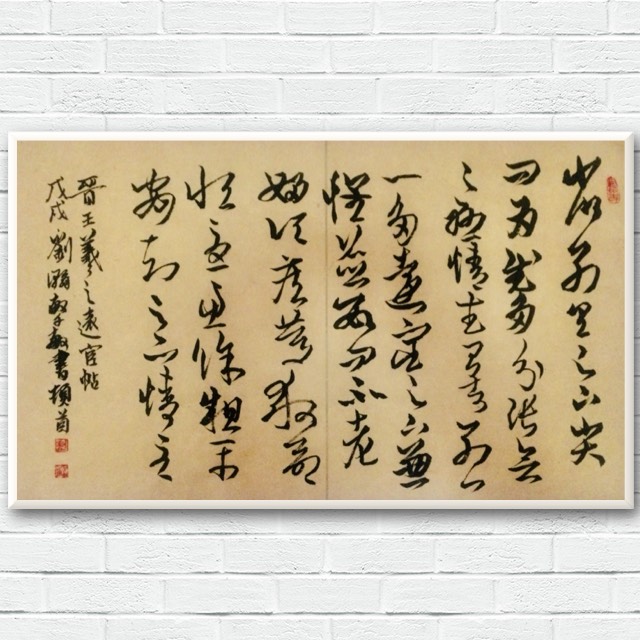 省別具足下小大
問為慰多分張念
足下懸情武昌諸子
亦多遠宦足下兼
懷並數問不老
婦頃疾篤救命
恒憂慮餘粗平
安知足下情至
晉王羲之遠宦帖
戊戌劉 敬書頓首